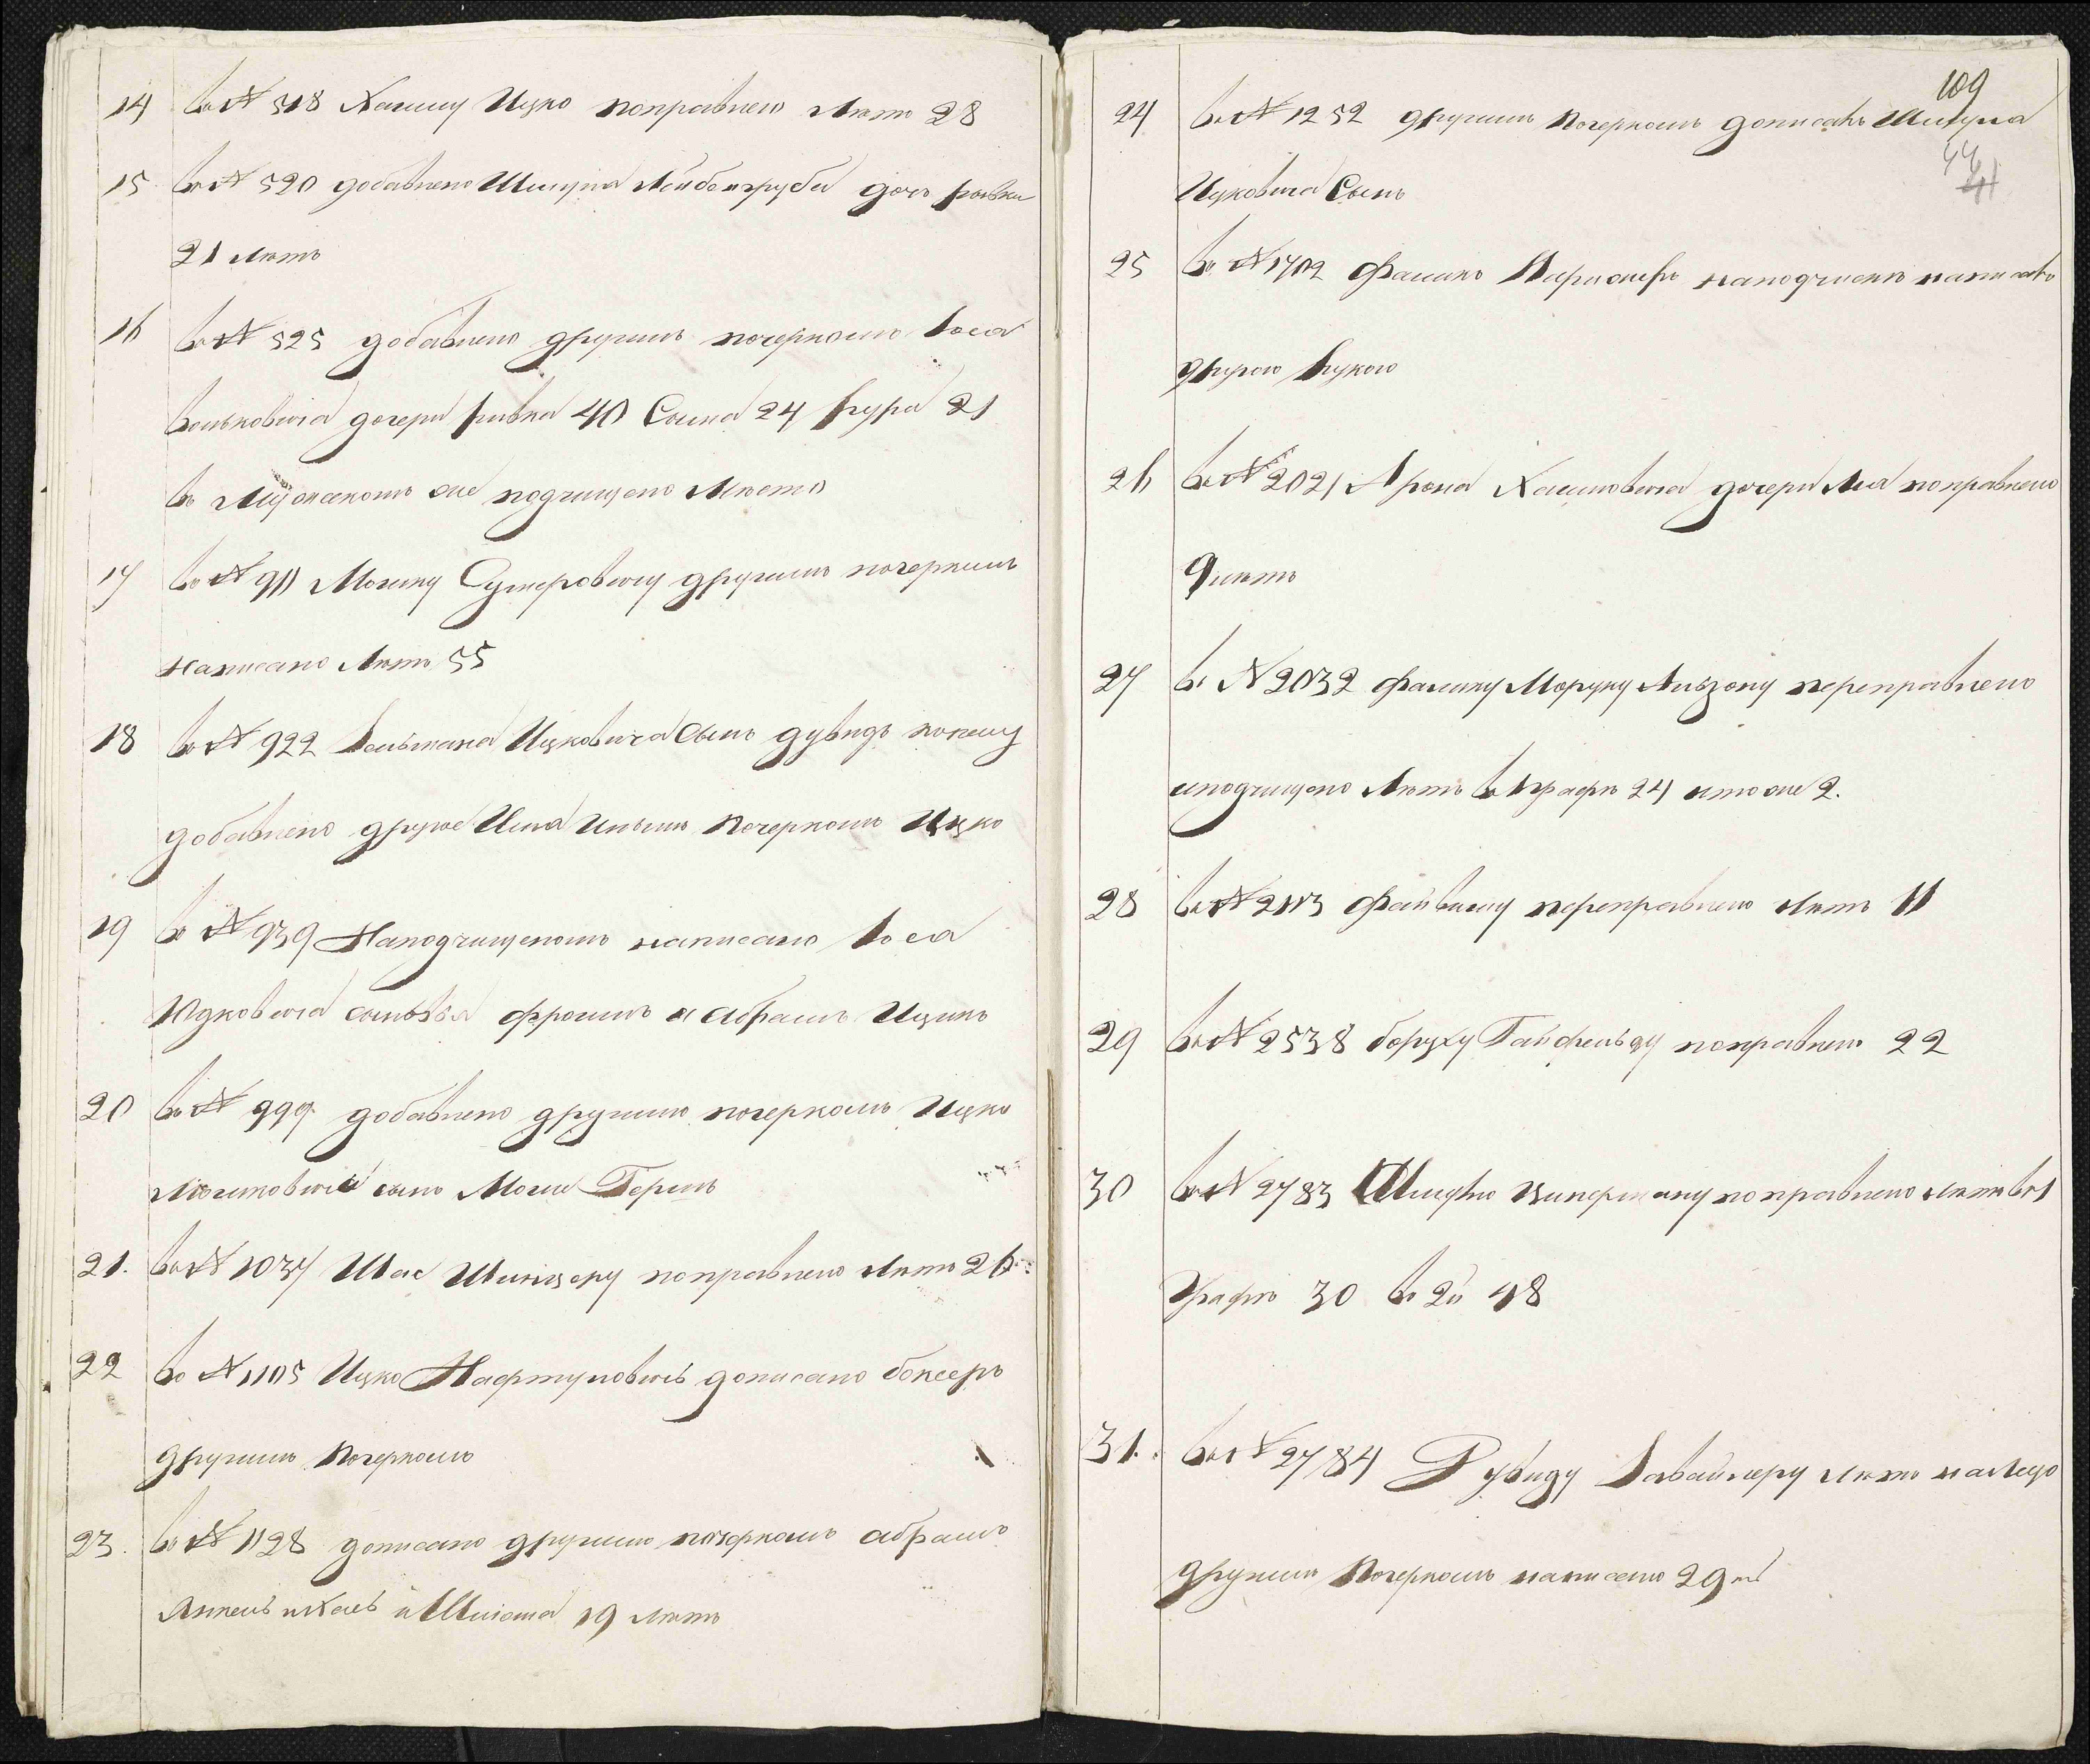 14 въ № 518 Хаиму Ицко поправлено Лѣтъ 28
15 въ № 520 добавлено Шмуля дочь ривка
21 лѣтъ
16 въ № 525 добавлено другимъ почеркомъ Іоса
Волковича дочери ривка 40 Сима 24 рура 21
въ Мужскомъ же подчищено Мѣсто
17 въ № 911 Мошку другимъ почеркомъ
написано Лѣтъ 55
18 въ № 922 Ицковича Сынъ дувидъ коему
добавлено другое Имя Инымъ почеркомъ Ицко
19 въ № 939 Наподчищеномъ написано Іоса
Юдковича сыновья фроимъ и абрамъ Ицикъ
20 въ № 999 добавлено другимъ почеркомъ Ицко
Мошковича сынъ Моше Гершъ
21. въ № 1037 поправлено Лѣтъ 26
22 въ № 1105 Ицко Нафтуловичъ дописано боксеръ
другимъ почеркомъ
23. въ № 1128 дописано другимъ почеркомъ абрамъ
19 лѣтъ
109
24 въ № 1252 другимъ почеркомъ дописанъ Шмуля
44
41
Ицковича Сынъ
25 въ № 1702 наподчисткѣ написано
другою рукою
26 въ № 2021 Арона Хаимовича дочери Леи поправлено
9 лѣтъ
27 въ № 2032 переправлено
иподчищено Лѣтъ въ 1 графѣ 24 итоже 2.
28 въ № 2113 Файвишу переправлено лѣтъ 11
29 въ № 2538 боруху Ганфельду поправлено 22
30 въ № 2783 Шмулю Цимерману поправлено лѣтъ въ 1
Графѣ 30 въ 2й 48
31. въ № 2784 Дувиду лѣтъ
другимъ почеркомъ написано 29